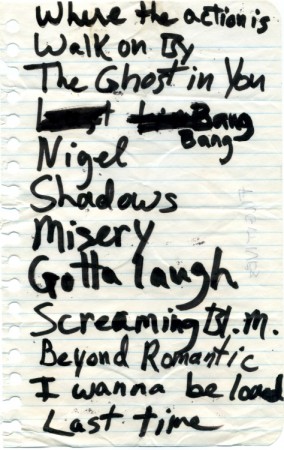 Where the action is
Walk on By
The Ghost in You
Bang
Bang
Nigel
Shadows
Misery
Gotta laugh
Screaming Bl. M.
Beyond Romantic
I wanna be loved
Last time